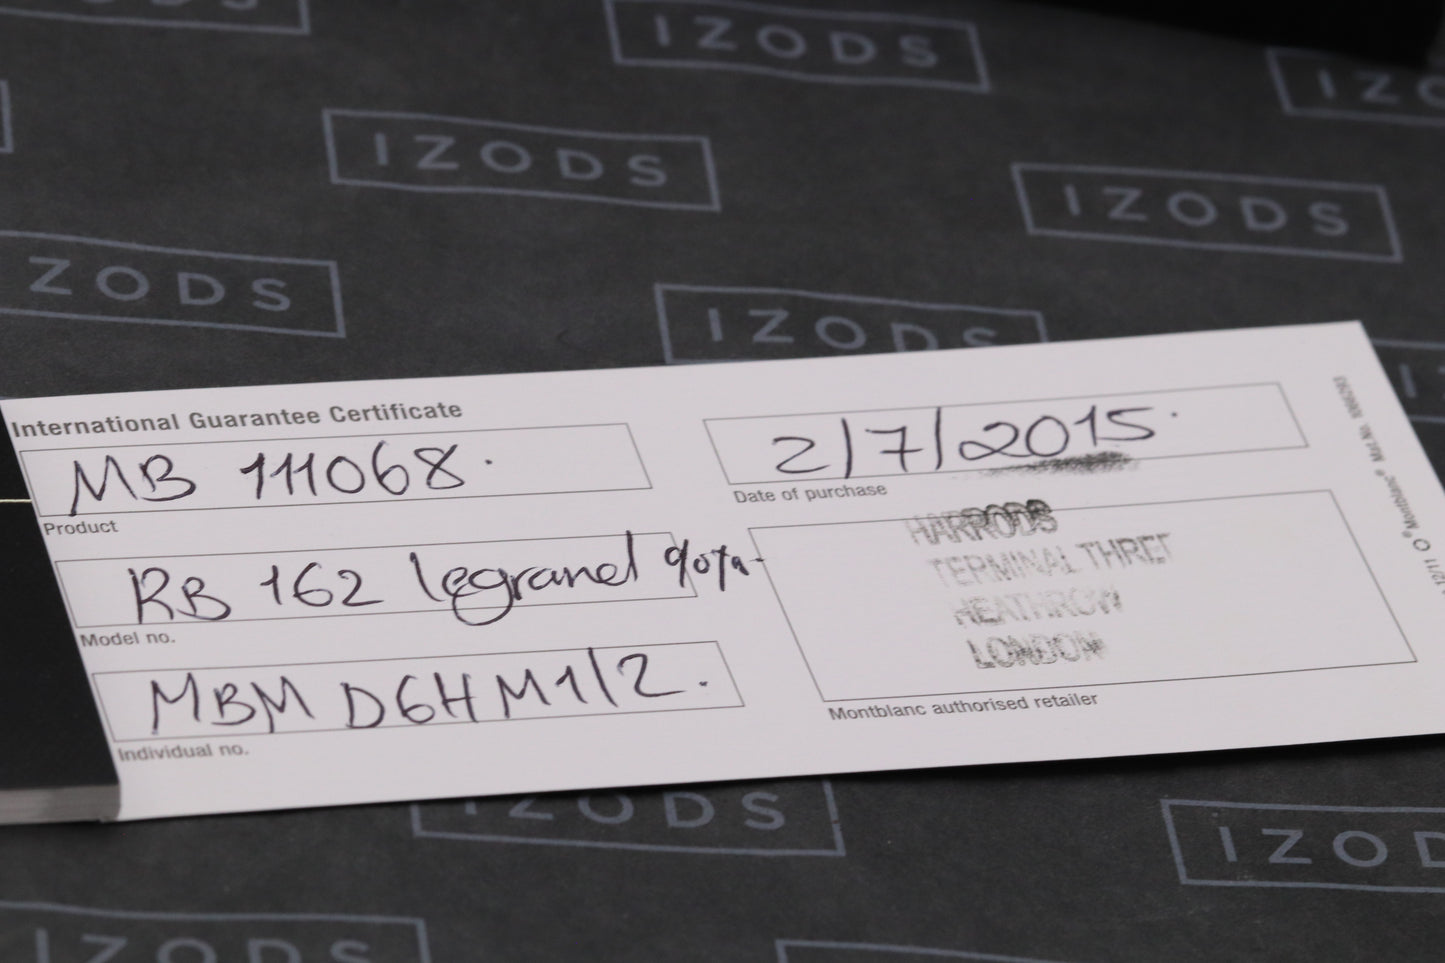 IZODS
IZODS
IZODS
ZODS
IZODS
International Guarantee Certificate
MB 111068.
Product
RB 162 legrand
Model no.
MBM D6HM1/2.
Individual no.
2/7/2015.
Date of purchase
HARRODS
TERMINAL THREE
HEATHROW
LONDON
Montblanc authorised retailer
12/11 O® Montblanc® Mat.No.
IZODS
IZOD
IZODS